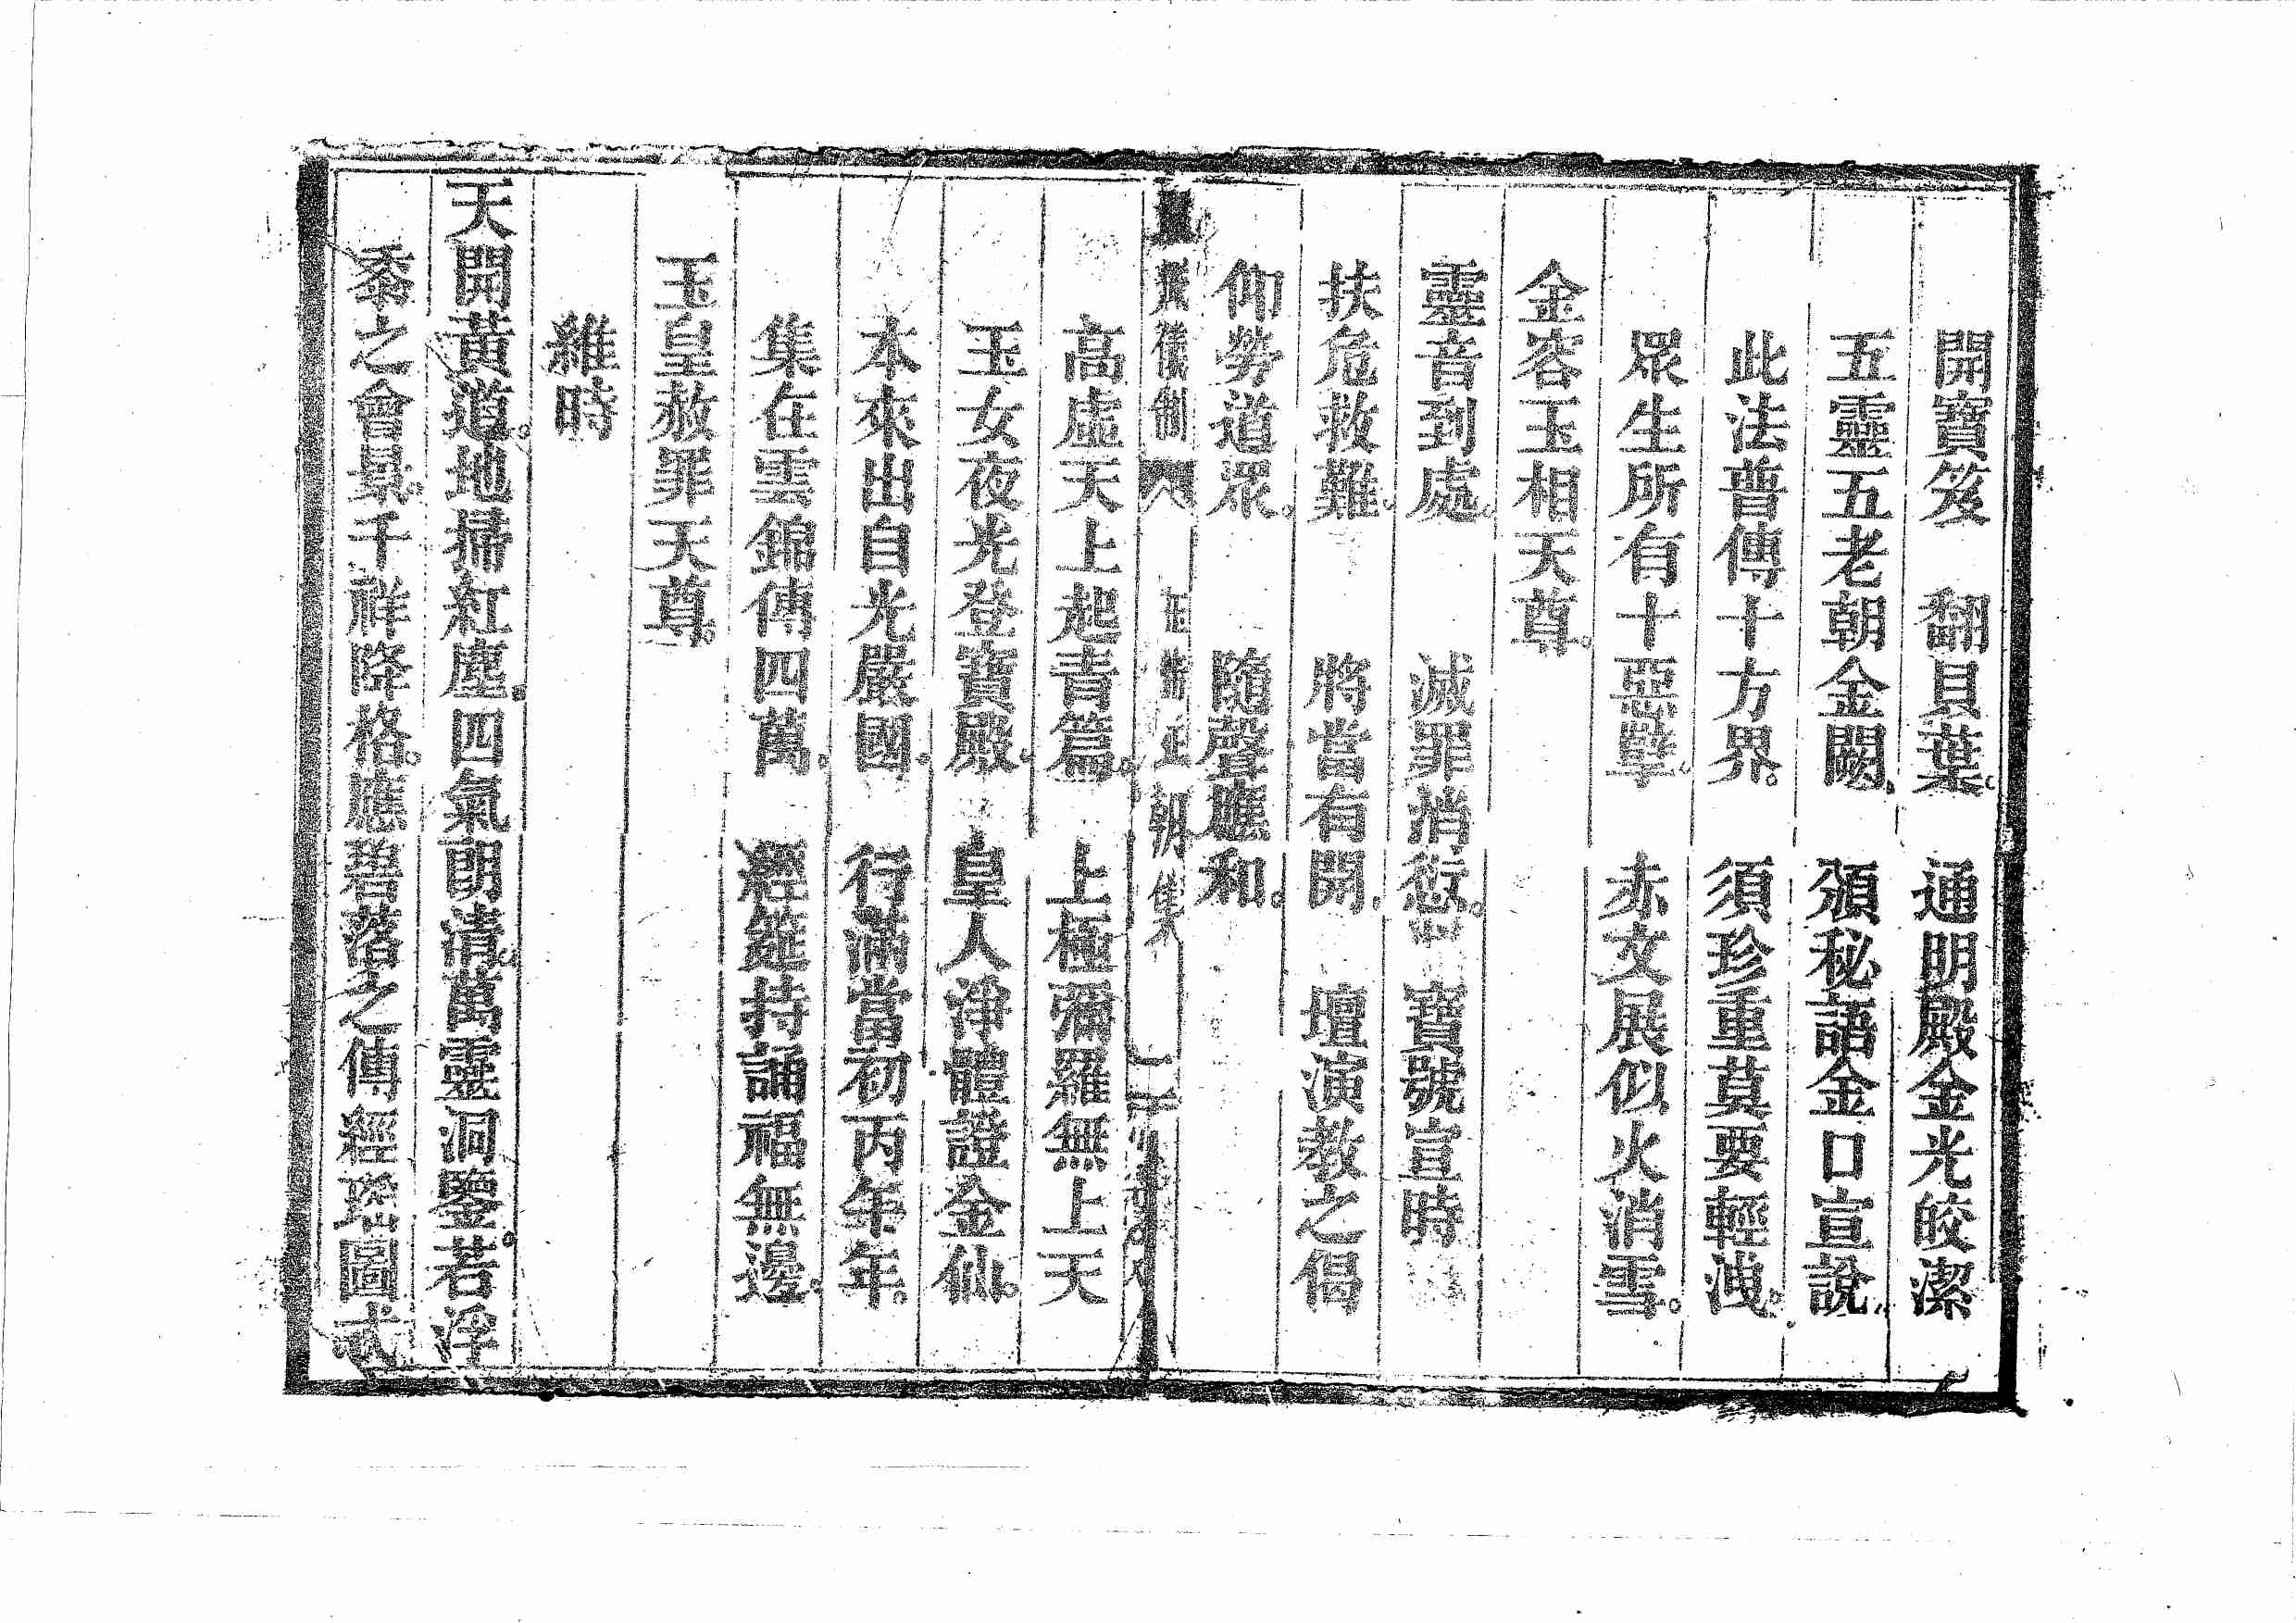 開寶笈　翻貝葉。　通明殿金光皎潔
五靈五老朝金闕、　頒秘語金口宣說。
此法普傳十方界。　須珍重莫要輕洩。
眾生所有十惡孽。　赤文展似火消雪。
金容玉相天尊。
靈音到處。　滅罪消愆。　寶號宣時
扶危救難。　將當有開、　壇演教之偈
仰勞道眾。　隨聲應和。
正朝集
高虛天上起青篇。　上極彌羅無上天
玉女夜光登寶殿。　皇人淨體證金仙。
本來出自光嚴國。　行滿當初丙午年。
集在雲錦傳四萬。　經筵持誦福無邊。
玉皇赦罪天尊。
維時
天開黃道。地掃紅塵。四氣朗清。萬靈洞鑒。若浮
黍之會景。千祥降格。應碧落之傳經瑤圖式